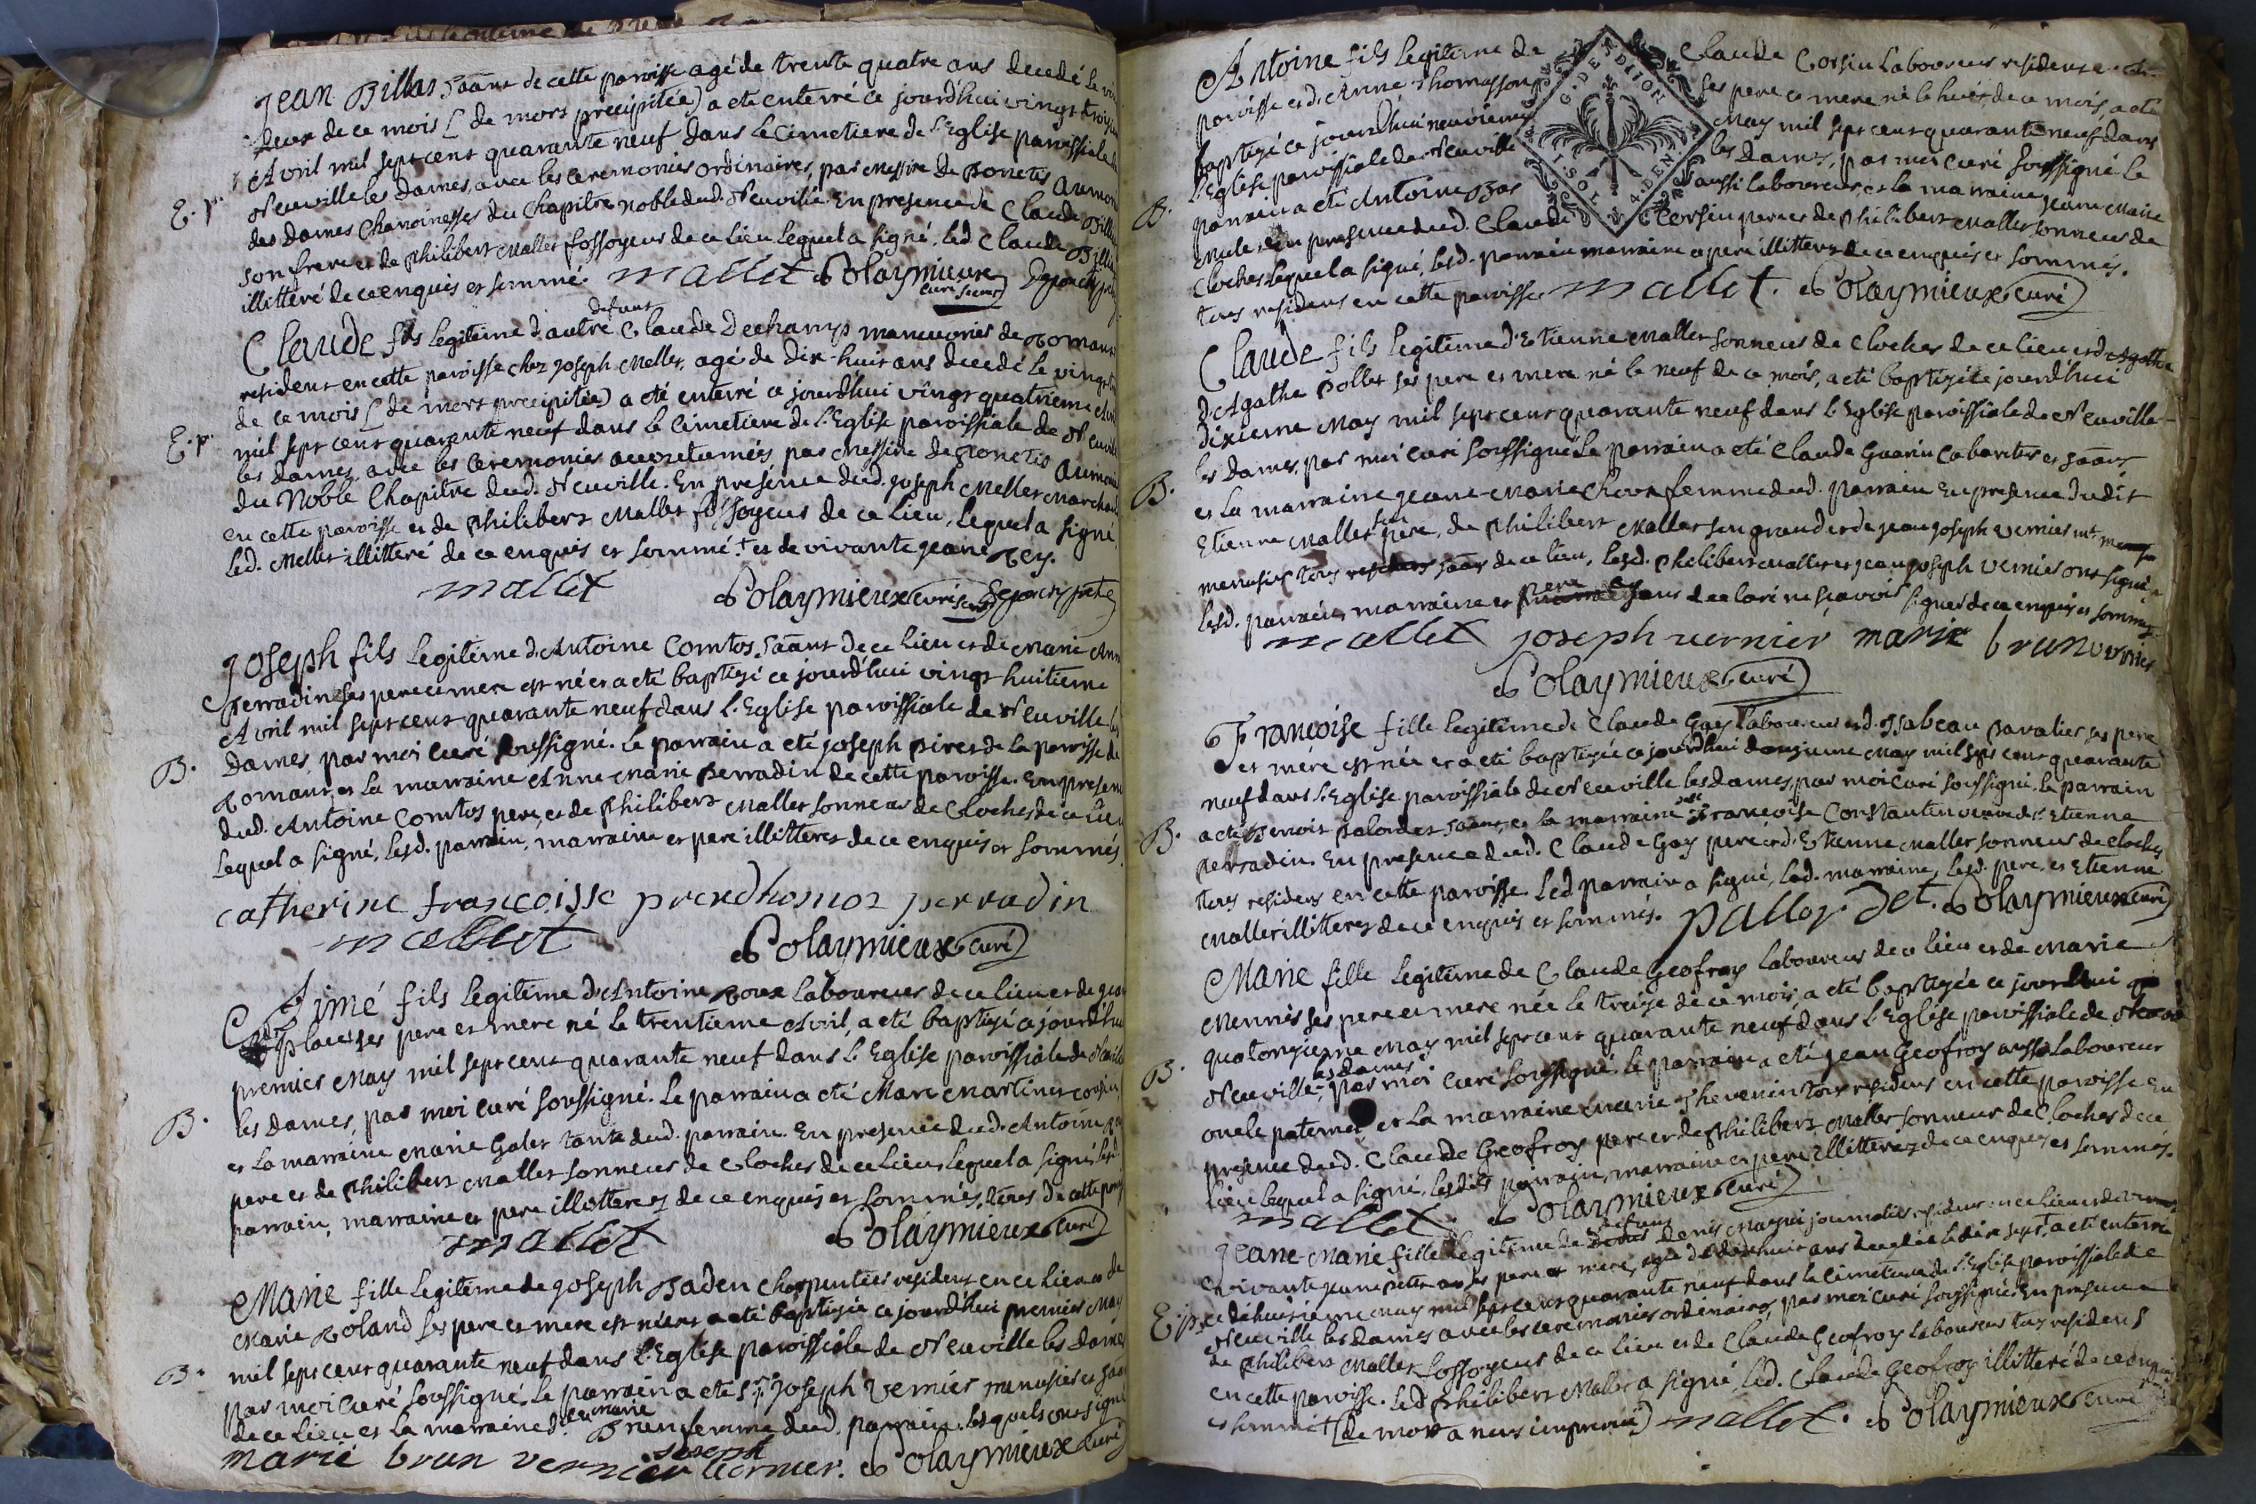 Jean Billas de cette paroisse agé de trente quatre ans decedé le
deux de ce mois (de mort precipitée) a eté enterré ce jourd'hui vingt troisieme
Avril mil sept cent quarante neuf dans le Cimetiere de l'Eglise paroissiale de
E. p. Neuville les Dames, avec les ceremonies ordinaires, par Messire de Ponctis Aumon
des Dames Chanoinesses du Chapitre noble dud. Neuville. En presence de Claude
son frere et de Philibert Mallet fossoyeur de ce lieu lequel a signé, led. Claude
illitteré de ce enquis et sommé. mallet Polaymieux curé
defunt
Claude fils legitime d'autre Claude Dechamps manuvrier de Romans
resident en cette paroisse chez Joseph Mellet, agé de dix-huit ans decedé le vingt
de ce mois (de mort precipitée) a eté enterré ce jourd'hui vingt quatrieme Avril
E. p. mil sept cent quarante neuf dans le Cimetiere de l'Eglise paroissiale de Neuville
les Dames, avec les ceremonies accoutumées par Messire de Ponctis Aumonier
du Noble Chapitre dud. Neuville. En présence dud. Joseph Mellet Marchand
en cette paroisse et de Philibert Mallet fossoyeur de ce lieu, lequel a signé,
led. Mellet illitteré de ce enquis et sommé. + et de vivante Jeane Rey.
mallet Polaymieux curé
Joseph fils legitime d'Antoine Comtos de ce lieu et de Marie Anne
Perradin ses pere et mere est né et a eté baptizé ce jourd'hui vingt huitieme
Avril mil sept cent quarante neuf dans l'Eglise paroissiale de Neuville les
B. Dames, par moi curé soussigné. Le parrain a eté Joseph Piret de la paroisse de
Romans, et la marraine Anne Marie Perradin de cette paroisse. En presence
dud. Antoine Comtos pere, et de Philibert Mallet sonneur de Cloches de ce lieu
lequel a signé, lesd. parrain, marraine et pere illitterez de ce enquis et sommés.
catherine françoisse prendhomoz perradin
mallet Polaymieux curé
Aimé fils legitime d'Antoine Roux Laboureur de ce lieu et de
Place ses pere et mere né le trentieme Avril, a eté baptizé ce jourd'hui
premier May mil sept cent quarante neuf dans l'Eglise paroissiale de Neuville
B. les Dames, par moi curé soussigné. Le parrain a eté Marc Martinet
et la marraine Marie Galet tante dud. parrain. En presence dud. Antoine
pere et de Philibert Mallet sonneur de Cloches de ce lieu, lequel a signé, lesd.
parrain, marraine et pere illitterez de ce enquis et sommés, tous de cette
mallet Polaymieux curé
Marie fille legitime de Joseph Baden Charpentier resident en ce lieu et de
Marie Roland ses pere et mere est née et a eté baptizée ce jourd'hui premier May
B. mil sept cent quarante neuf dans l'Eglise paroissiale de Neuville les Dames
par moi curé soussigné. Le parrain a eté Sr. Joseph Vernier menusier
de ce lieu et la marraine marie Brun femme dud. parrain. lesquels ont signé
joseph
marie brun vernier vernier. Polaymieux curé
G. DE DIJON
4. DEN
Antoine fils legitime de Claude Corsin Laboureur resident en
paroisse et d'Anne Thomasson ses pere et mere né le huit de ce mois, a eté
baptizé ce jourd'hui neuvieme May mil sept cent quarante neuf dans
l'Eglise paroissiale de Neuville les Dames, par moi curé soussigné le
B. parrain a eté Antoine Bas aussi laboureur, et la marraine Jeane Marie
en presence dud. Claude Corsin pere et de Philibert Mallet sonneur de
Cloches lequel a signé, lesd. parrain marraine et pere illitterez de ce enquis et sommés.
tous residens en cette paroisse mallet. Polaymieux curé
Claude fils legitime d'Etienne Mallet sonneur de Cloches de ce lieu et d'Agathe
d'Agathe Pollet ses pere et mere né le neuf de ce mois, a eté baptizé ce jourd'hui
dixieme May mil sept cent quarante neuf dans l'Eglise paroissiale de Neuville
les Dames, par moi curé soussigné. Le parrain a eté Claude Guerin Cabaretier et
B. et la marraine Jeane-Marie femme dud. parrain En presence dudit
Etienne Mallet son pere, de Philibert Mallet son grand et de Jean Joseph Vernier mt.
menusier tous de ce lieu, lesd. Philibert Mallet et Jean Joseph Vernier ont signé,
lesd. parrain, marraine et pere ayans declaré ne sçavoir signer de ce enquis et sommés.
mallet joseph vernier marie brun vernier
Polaymieux curé
Françoise fille legitime de Claude Gay laboureur et d'Isabeau Pavalier ses pere
et mere est née et a eté baptizée ce jourd'hui douzieme May mil sept cent quarante
neuf dans l'Eglise paroissiale de Neuville les Dames, par moi curé soussigné. le parrain
B. a eté Benoit Palordet et la marraine Françoise Constantin veuve d'Etienne
Perradin. En presence dud. Claude Gay pere et d'Etienne Mallet sonneur de Cloches
tous residens en cette paroisse. Led. parrain a signé, lad. marraine, lesd. pere, et Etienne
Mallet illitterez de ce enquis et sommés. pallordet. Polaymieux curé
Marie fille legitime de Claude Geofray Laboureur de ce lieu et de Marie
Mennier ses pere et mere née le treize de ce mois, a eté baptizée ce jourd'hui
quatorzieme May mil sept cent quarante neuf dans l'Eglise paroissiale de
les Dames
B. Neuville, par moi curé soussigné, le parrain a eté Jean Geofroy aussi Laboureur
oncle paternel et la marraine Marie Thevenin tous residens en cette paroisse En
presence dud. Claude Geofroy pere et de Philibert Mallet sonneur de Cloches de ce
lieu lequel a signé, lesdits parrain, marraine et pere illitterez de ce enquis et sommés.
mallet. Polaymieux curé
Jeane-Marie fille legitime de defunt Denis journalier resident en ce lieu et de
vivante ses pere et mere, agée de dix huit ans decedée le dix sept, a eté enterrée
E. p. ce dix huitieme May mil sept cent quarante neuf dans le Cimetiere de l'Eglise paroissiale de
Neuville les Dames avec les ceremonies ordinaires, par moi curé soussigné. En presence
de Philibert Mallet fossoyeur de ce lieu et de Claude Geofroy laboureur tous residens
en cette paroisse. Led. Philibert Mallet a signé, led. Claude Geofroy illitteré de ce enquis
et sommé + (de mort a nous imprevue) mallet. Polaymieux curé